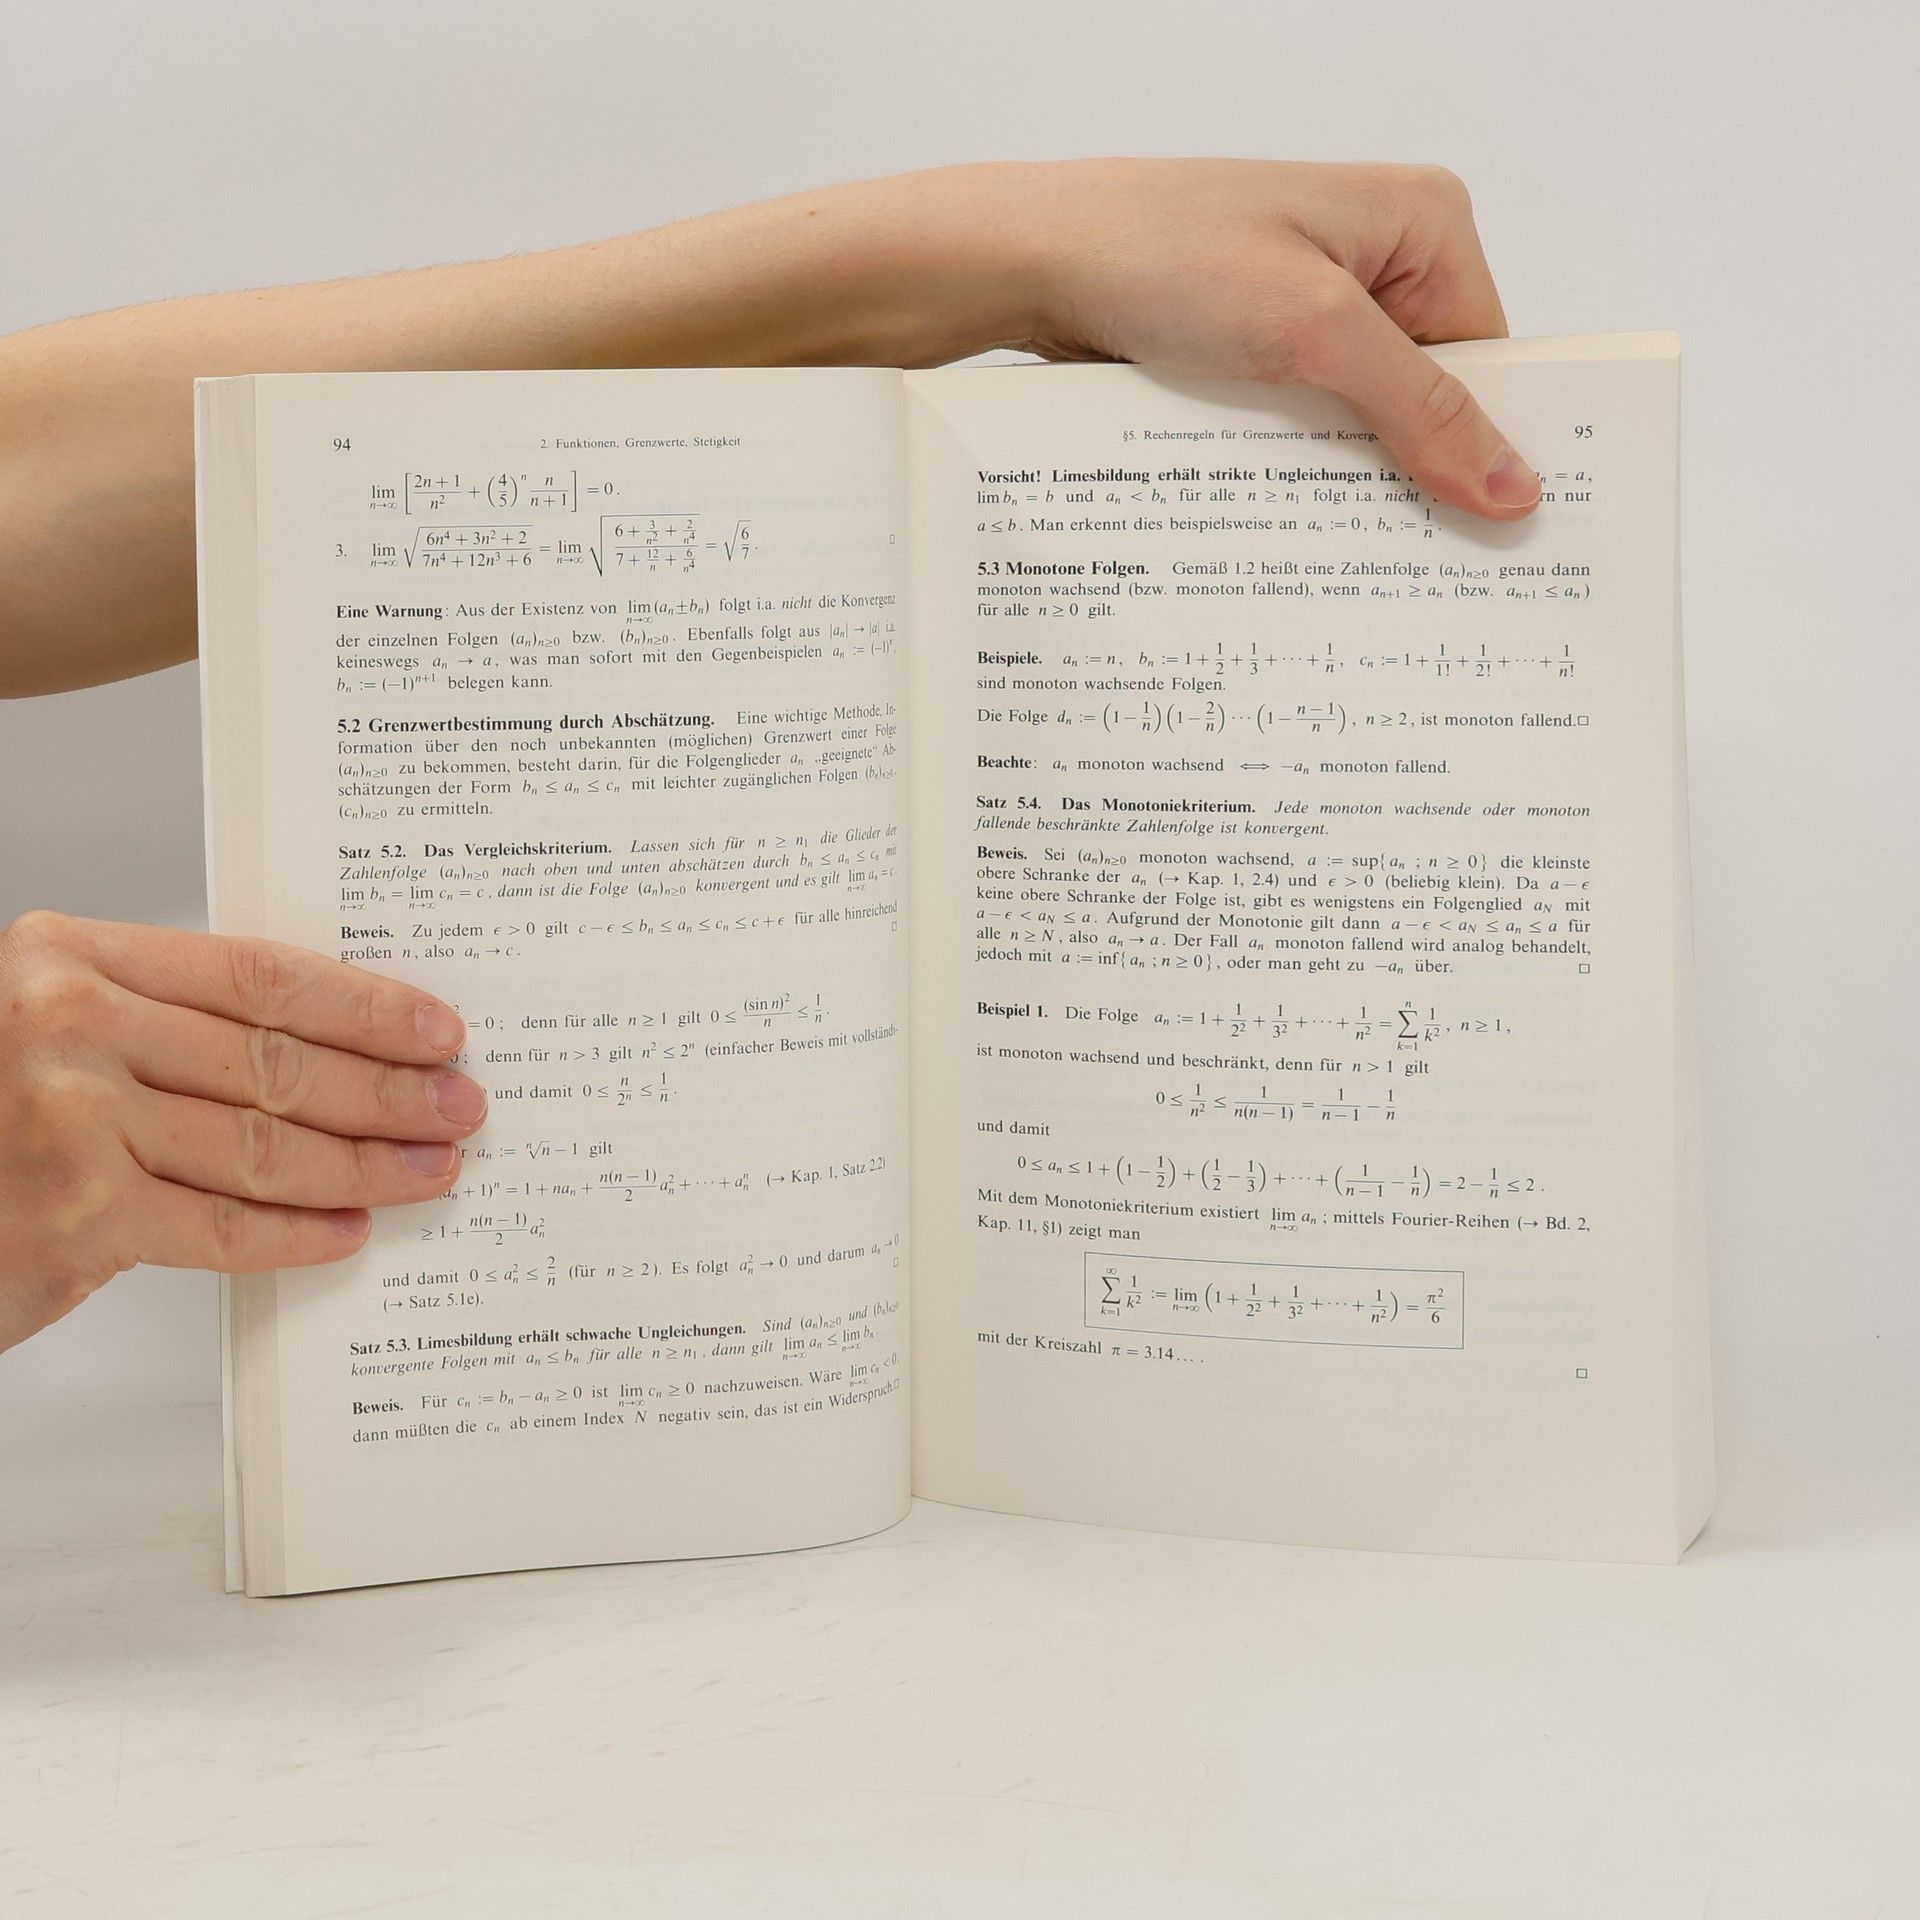 94 2. Funktionen, Grenzwerte, Stetigkeit
lim n→∞ [ (2n + 1)/n² + (4/5)ⁿ n/(n + 1) ] = 0.
3. lim n→∞ √( (6n⁴ + 3n² + 2)/(7n⁴ + 12n³ + 6) ) = lim n→∞ √( (6 + 3/n² + 2/n⁴)/(7 + 12/n + 6/n⁴) ) = √(6/7). □
Eine Warnung: Aus der Existenz von lim n→∞ (aₙ ± bₙ) folgt i.a. nicht die Konvergenz
der einzelnen Folgen (aₙ)ₙ≥₀ bzw. (bₙ)ₙ≥₀. Ebenfalls folgt aus |aₙ| → |a| i.a.
keineswegs aₙ → a, was man sofort mit den Gegenbeispielen aₙ := (−1)ⁿ,
bₙ := (−1)ⁿ⁺¹ belegen kann.
5.2 Grenzwertbestimmung durch Abschätzung. Eine wichtige Methode, In-
formation über den noch unbekannten (möglichen) Grenzwert einer Folge
(aₙ)ₙ≥₀ zu bekommen, besteht darin, für die Folgenglieder aₙ „geeignete“ Ab-
schätzungen der Form bₙ ≤ aₙ ≤ cₙ mit leichter zugänglichen Folgen (bₙ)ₙ≥₀,
(cₙ)ₙ≥₀ zu ermitteln.
Satz 5.2. Das Vergleichskriterium. Lassen sich für n ≥ n₁ die Glieder der
Zahlenfolge (aₙ)ₙ≥₀ nach oben und unten abschätzen durch bₙ ≤ aₙ ≤ cₙ mit
lim n→∞ bₙ = lim n→∞ cₙ = c, dann ist die Folge (aₙ)ₙ≥₀ konvergent und es gilt lim n→∞ aₙ = c.
Beweis. Zu jedem ϵ > 0 gilt c − ϵ ≤ bₙ ≤ aₙ ≤ cₙ ≤ c + ϵ für alle hinreichend
großen n, also aₙ → c. □
= 0; denn für alle n ≥ 1 gilt 0 ≤ (sin n)²/n ≤ 1/n.
0; denn für n > 3 gilt n² ≤ 2ⁿ (einfacher Beweis mit vollständi-
und damit 0 ≤ n/2ⁿ ≤ 1/n.
aₙ := ⁿ√n − 1 gilt
(aₙ + 1)ⁿ = 1 + naₙ + n(n − 1)/2 aₙ² + ··· + aₙⁿ (→ Kap. 1, Satz 2.2)
≥ 1 + n(n − 1)/2 aₙ²
und damit 0 ≤ aₙ² ≤ 2/n (für n ≥ 2). Es folgt aₙ² → 0 und darum aₙ → 0
(→ Satz 5.1e). □
Satz 5.3. Limesbildung erhält schwache Ungleichungen. Sind (aₙ)ₙ≥₀ und (bₙ)ₙ≥₀
konvergente Folgen mit aₙ ≤ bₙ für alle n ≥ n₁, dann gilt lim n→∞ aₙ ≤ lim n→∞ bₙ.
Beweis. Für cₙ := bₙ − aₙ ≥ 0 ist lim n→∞ cₙ ≥ 0 nachzuweisen. Wäre lim n→∞ cₙ < 0,
dann müßten die cₙ ab einem Index N negativ sein, das ist ein Widerspruch. □
§5. Rechenregeln für Grenzwerte und 95
Vorsicht! Limesbildung erhält strikte Ungleichungen i.a. aₙ = a,
lim bₙ = b und aₙ < bₙ für alle n ≥ n₁ folgt i.a. nicht nur
a ≤ b. Man erkennt dies beispielsweise an aₙ := 0, bₙ := 1/n.
5.3 Monotone Folgen. Gemäß 1.2 heißt eine Zahlenfolge (aₙ)ₙ≥₀ genau dann
monoton wachsend (bzw. monoton fallend), wenn aₙ₊₁ ≥ aₙ (bzw. aₙ₊₁ ≤ aₙ)
für alle n ≥ 0 gilt.
Beispiele. aₙ := n, bₙ := 1 + 1/2 + 1/3 + ··· + 1/n, cₙ := 1 + 1/1! + 1/2! + ··· + 1/n!
sind monoton wachsende Folgen.
Die Folge dₙ := (1 − 1/n)(1 − 2/n) ··· (1 − (n − 1)/n), n ≥ 2, ist monoton fallend. □
Beachte: aₙ monoton wachsend ⟺ −aₙ monoton fallend.
Satz 5.4. Das Monotoniekriterium. Jede monoton wachsende oder monoton
fallende beschränkte Zahlenfolge ist konvergent.
Beweis. Sei (aₙ)ₙ≥₀ monoton wachsend, a := sup{aₙ ; n ≥ 0} die kleinste
obere Schranke der aₙ (→ Kap. 1, 2.4) und ϵ > 0 (beliebig klein). Da a − ϵ
keine obere Schranke der Folge ist, gibt es wenigstens ein Folgenglied a_N mit
a − ϵ < a_N ≤ a. Aufgrund der Monotonie gilt dann a − ϵ < a_N ≤ aₙ ≤ a für
alle n ≥ N, also aₙ → a. Der Fall aₙ monoton fallend wird analog behandelt,
jedoch mit a := inf{aₙ ; n ≥ 0}, oder man geht zu −aₙ über. □
Beispiel 1. Die Folge aₙ := 1 + 1/2² + 1/3² + ··· + 1/n² = ∑ₖ₌₁ⁿ 1/k², n ≥ 1,
ist monoton wachsend und beschränkt, denn für n > 1 gilt
0 ≤ 1/n² ≤ 1/(n(n − 1)) = 1/(n − 1) − 1/n
und damit
0 ≤ aₙ ≤ 1 + (1 − 1/2) + (1/2 − 1/3) + ··· + (1/(n − 1) − 1/n) = 2 − 1/n ≤ 2.
Mit dem Monotoniekriterium existiert lim n→∞ aₙ; mittels Fourier-Reihen (→ Bd. 2,
Kap. 11, §1) zeigt man
∑ₖ₌₁^∞ 1/k² := lim n→∞ (1 + 1/2² + 1/3² + ··· + 1/n²) = π²/6
mit der Kreiszahl π = 3.14....
□